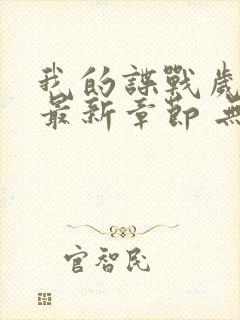 我的諜戰歲
最新章節 無
官智民